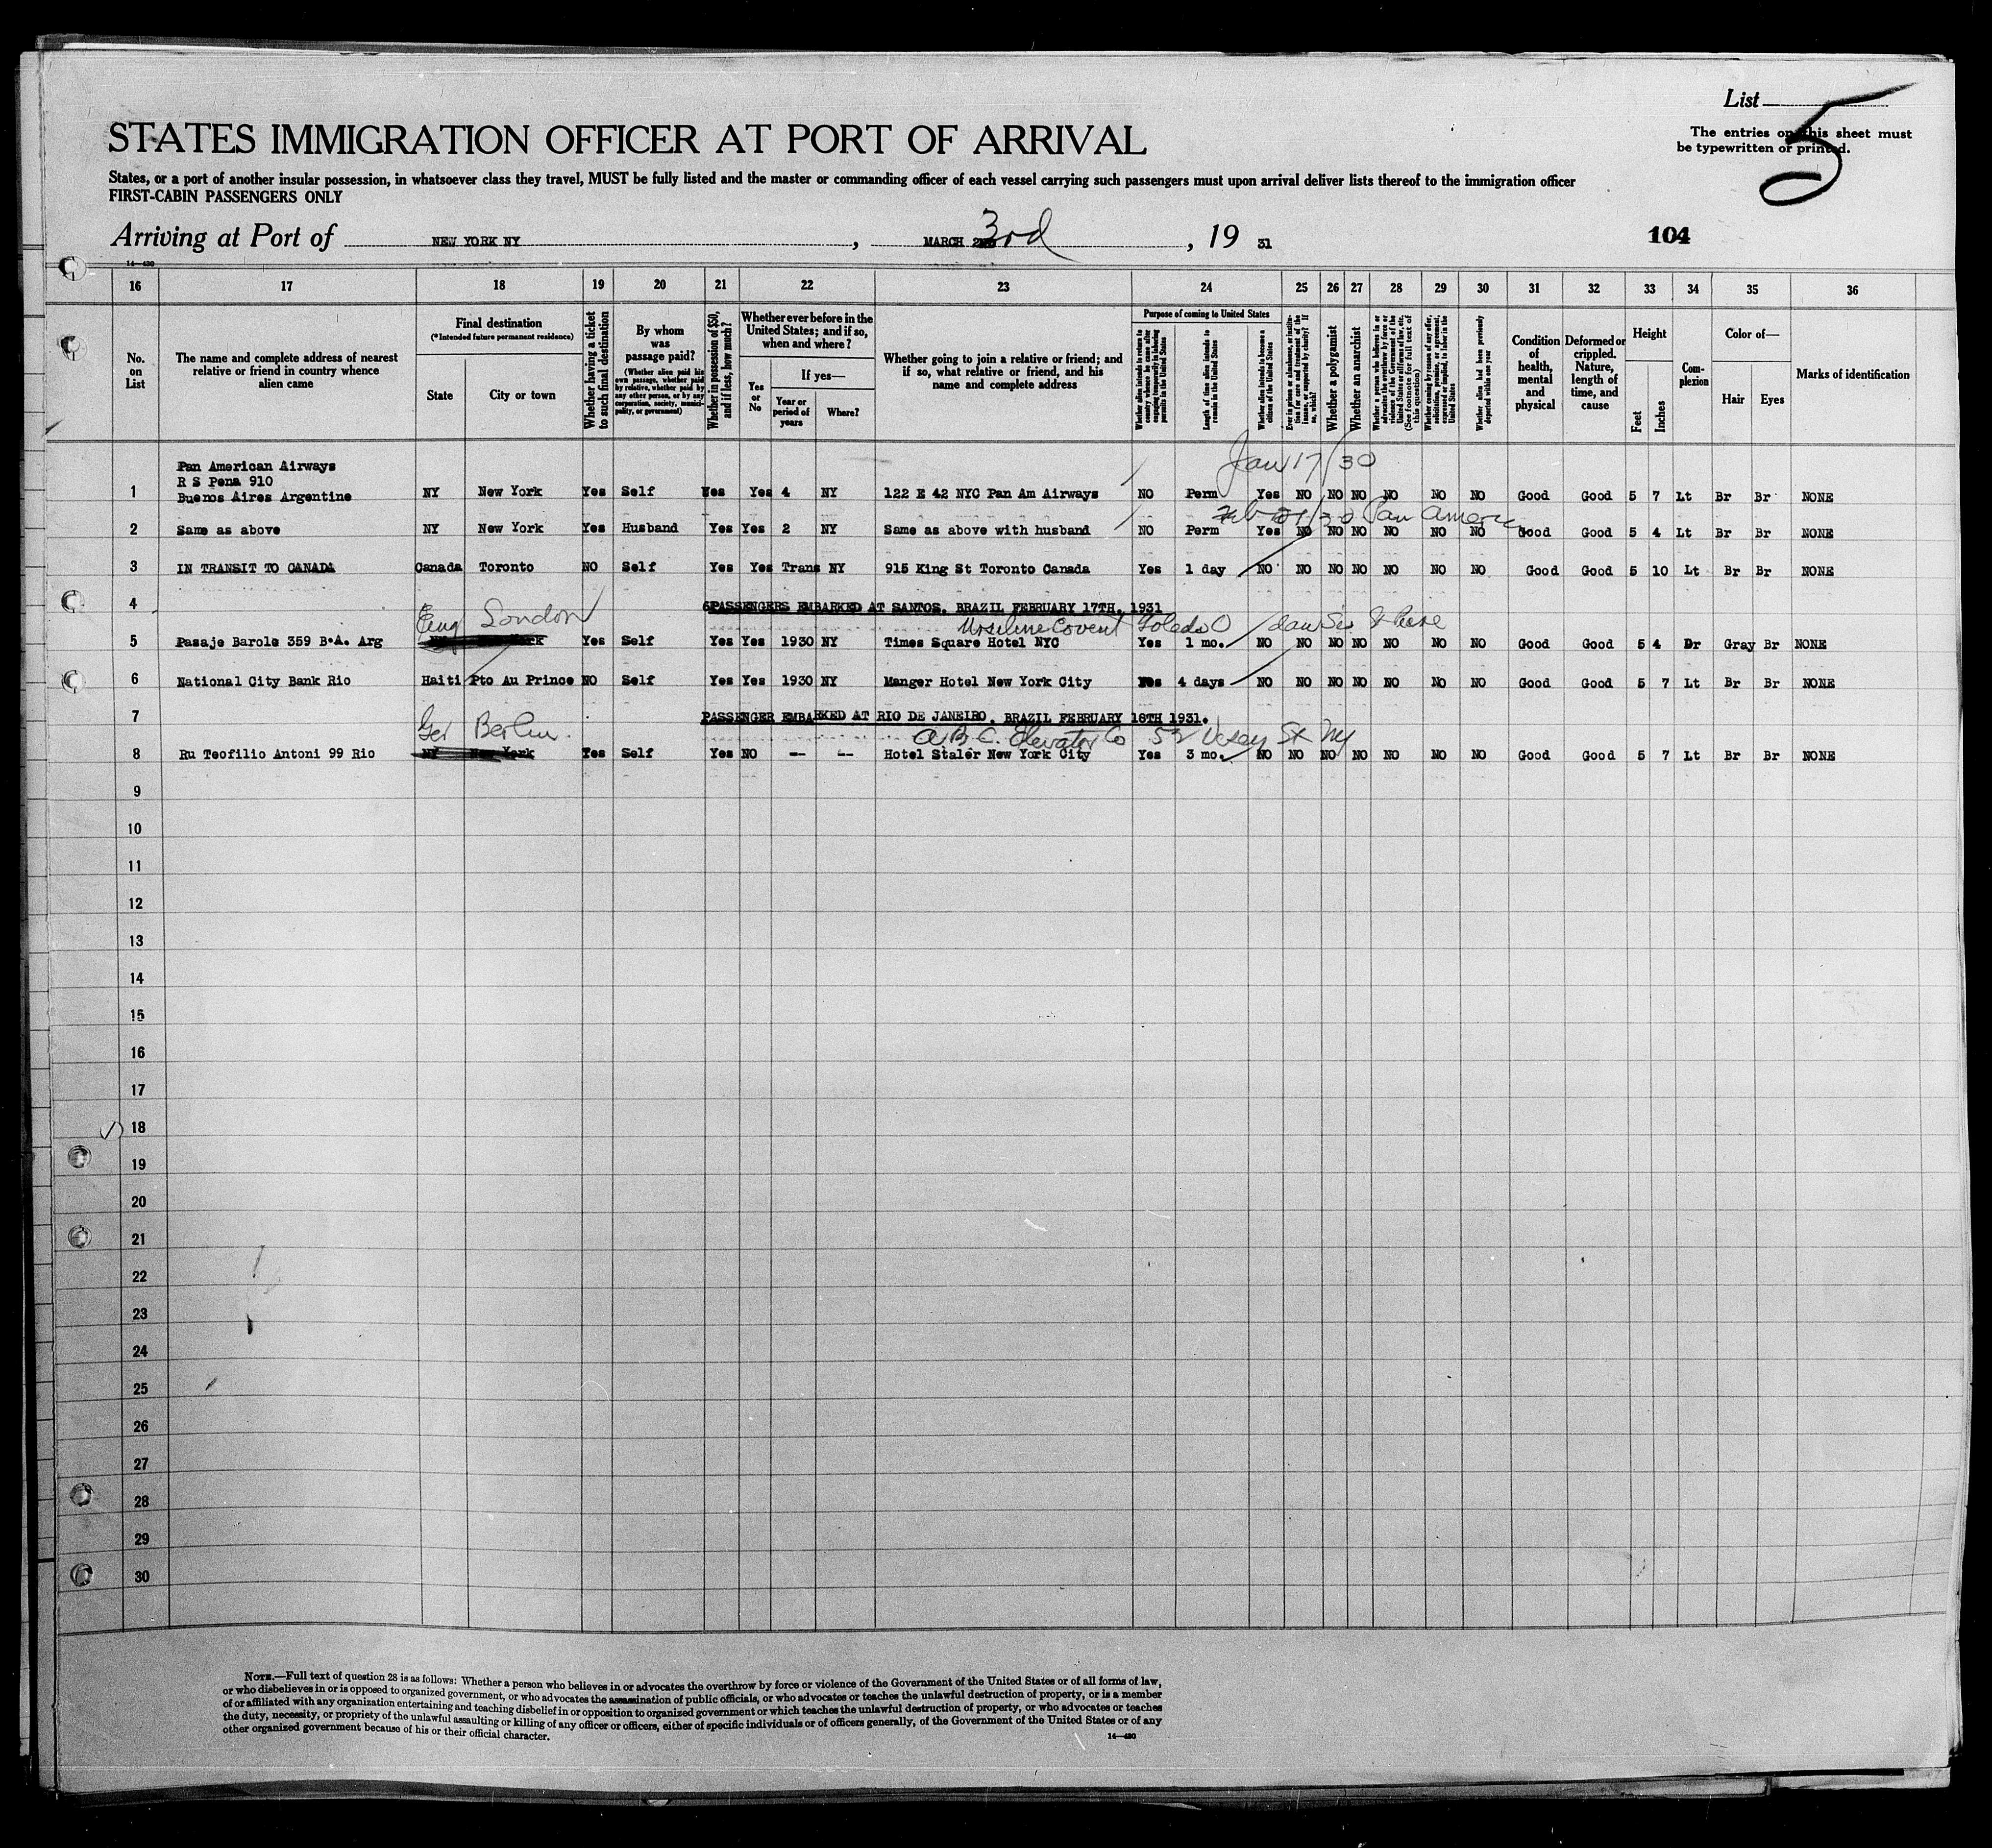 List 5
STATES IMMIGRATION OFFICER AT PORT OF ARRIVAL
The entries on this sheet must
be typewritten or printed.
States, or a port of another insular possession, in whatsoever class they travel, MUST be fully listed and the master or commanding officer of each vessel carrying such passengers must upon arrival deliver lists thereof to the immigration officer
FIRST-CABIN PASSENGERS ONLY
Arriving at Port of NEW YORK NY, MARCH 3rd, 19 31
104
14—430
16 17 18 19 20 21 22 23 24 25 26 27 28 29 30 31 32 33 34 35 36
No. on List
The name and complete address of nearest relative or friend in country whence alien came
Final destination
(*Intended future permanent residence)
State
City or town
Whether having a ticket to such final destination
By whom was passage paid?
(Whether alien paid his own passage, whether paid by relative, whether paid by any other person, or by any corporation, society, municipality, or government)
Whether in possession of $50, and if less, how much?
Whether ever before in the United States; and if so, when and where?
Yes or No
If yes—
Year or period of years
Where?
Whether going to join a relative or friend; and if so, what relative or friend, and his name and complete address
Purpose of coming to United States
Whether alien intends to return to country whence he came after engaging temporarily in laboring pursuits in the United States
Length of time alien intends to remain in the United States
Whether alien intends to become a citizen of the United States
Ever in prison or almshouse, or institution for care and treatment of the insane, or supported by charity? If so, which?
Whether a polygamist
Whether an anarchist
Whether a person who believes in or advocates the overthrow by force or violence of the Government of the United States or all forms of law, etc. (See footnote for full text of this question)
Whether coming by reason of any offer, solicitation, promise, or agreement, expressed or implied, to labor in the United States
Whether alien had been previously deported within one year
Condition of health, mental and physical
Deformed or crippled. Nature, length of time, and cause
Height
Feet
Inches
Complexion
Color of—
Hair
Eyes
Marks of identification
Jan 17/30
Pan American Airways
R S Pena 910
1 Buenos Aires Argentine NY New York Yes Self Yes Yes 4 NY 122 E 42 NYC Pan Am Airways NO Perm Yes NO NO NO NO NO NO Good Good 5 7 Lt Br Br NONE
/30 Pan Americ
2 Same as above NY New York Yes Husband Yes Yes 2 NY Same as above with husband NO Perm Yes NO NO NO NO NO NO Good Good 5 4 Lt Br Br NONE
3 IN TRANSIT TO CANADA Canada Toronto NO Self Yes Yes Trans NY 915 King St Toronto Canada Yes 1 day NO NO NO NO NO NO NO Good Good 5 10 Lt Br Br NONE
4 6PASSENGERS EMBARKED AT SANTOS, BRAZIL FEBRUARY 17TH, 1931
Eng London Urseline Covent Toledo O
5 Pasaje Barole 359 B.A. Arg Yes Self Yes Yes 1930 NY Times Square Hotel NYC Yes 1 mo. NO NO NO NO NO NO NO Good Good 5 4 Dr Gray Br NONE
6 National City Bank Rio Haiti Pto Au Prince NO Self Yes Yes 1930 NY Manger Hotel New York City Yes 4 days NO NO NO NO NO NO NO Good Good 5 7 Lt Br Br NONE
7 PASSENGER EMBARKED AT RIO DE JANEIRO, BRAZIL FEBRUARY 18TH 1931.
Ger Berlin. A.B.C. Elevator Co 52 Vesey St NY
8 Ru Teofilio Antoni 99 Rio NY New York Yes Self Yes NO -- -- Hotel Staler New York City Yes 3 mo. NO NO NO NO NO NO NO Good Good 5 7 Lt Br Br NONE
9
10
11
12
13
14
15
16
17
18
19
20
21
22
23
24
25
26
27
28
29
30
NOTE.—Full text of question 28 is as follows: Whether a person who believes in or advocates the overthrow by force or violence of the Government of the United States or of all forms of law,
or who disbelieves in or is opposed to organized government, or who advocates the assassination of public officials, or who advocates or teaches the unlawful destruction of property, or is a member
of or affiliated with any organization entertaining and teaching disbelief in or opposition to organized government or which teaches the unlawful destruction of property, or who advocates or teaches
the duty, necessity, or propriety of the unlawful assaulting or killing of any officer or officers, either of specific individuals or of officers generally, of the Government of the United States or of any
other organized government because of his or their official character.
14—430